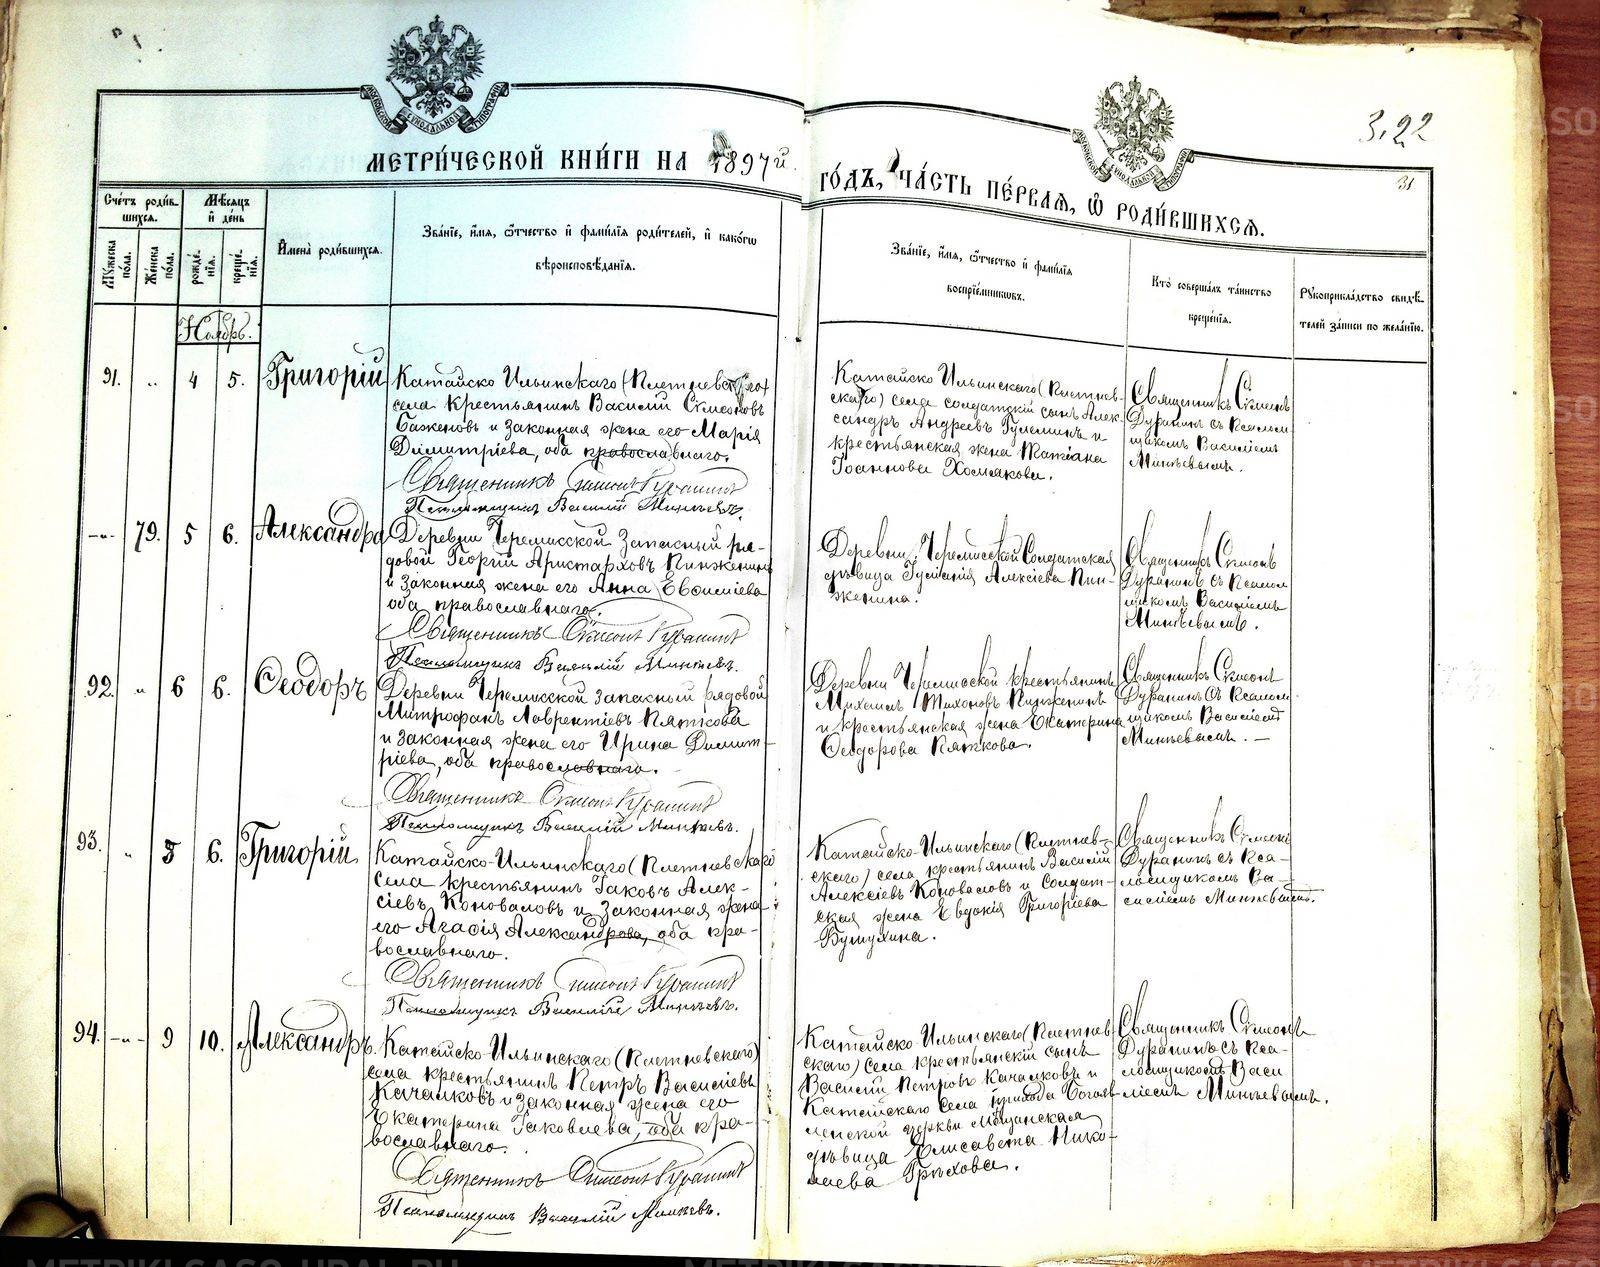 3,22
31
МЕТРИ́ЧЕСКОЙ КНИ́ГИ НА 1897й
ГО́ДЪ, ЧА́СТЬ ПЕ́РВАЯ, Ѿ РОДИ́ВШИХСЯ.
Сче́тъ роди́в-
шихся.
Мѣ́сяцъ
и҆ де́нь
Мꙋ́жеска
по́ла.
Же́нска
по́ла.
рожде́-
нїя.
креще́-
нїя.
И҆мена̀ роди́вшихся.
Зва́нїе, и҆́мя, ѻ҆́тчество и҆ фами́лїя роди́телей, и҆ како́гѡ
вѣроисповѣ́данїя.
Зва́нїе, и҆́мя, ѻ҆́тчество и҆ фами́лїя
воспрїе́мникѡвъ.
Кто̀ соверша́лъ та́инство
креще́нїя.
Рꙋкоприкла́дство свидѣ́-
телей за́писи по жела́нїю.
Ноябрь.
91. " 4 5. Григорій
Катайско Ильинскаго (Плетневскаго)
села крестьянинъ Василій Сѵмеоновъ
Баженовъ и законная жена его Марія
Димитріева, оба православнаго.
Священникъ Сѵмеонъ Дуранинъ
Псаломщикъ Василій Минѣевъ.
Катайско Ильинскаго (Плетнев-
скаго) села солдатскій сынъ Алек-
сандръ Андреевъ Гулеминъ и
крестьянская жена Татіана
Іоаннова Хомякова.
Священникъ Сѵмеонъ
Дуранинъ съ Псалом-
щикомъ Василіемъ
Минѣевымъ.
-"- 79. 5 6. Александра
Деревни Черемисской запасный ря-
довой Георгій Аристарховъ Пинженинъ
и законная жена его Анна Евѳиміева
оба православнаго.
Священникъ Сѵмеонъ Дуранинъ
Псаломщикъ Василій Минѣевъ.
Деревни Черемисской Солдатская
дѣвица Алексіева Пин-
женина.
Священникъ Сѵмеонъ
Дуранинъ съ Псалом
щикомъ Василіемъ
Минѣевымъ.
92. " 6 6. Ѳеодоръ
Деревни Черемисской запасный рядовой
Митрофанъ Лаврентіевъ Пяткова
и законная жена его Ирина Димит-
ріева, оба православнаго.
Священникъ Сѵмеонъ Дуранинъ
Псаломщикъ Василій Минѣевъ.
Деревни Черемисской крестьянинъ
Михаилъ Тихоновъ Пинженинъ
и крестьянская жена Екатерина
Ѳеодорова Пяткова.
Священникъ Сѵмеонъ
Дуранинъ съ Псалом
щикомъ Василіемъ
Минѣевымъ. —
93. " 5 6. Григорій
Катайско-Ильинскаго (Плетневскаго)
села крестьянинъ Іаковъ Алек-
сіевъ Коноваловъ и законная жена
его Агаѳія Александрова, оба пра-
вославнаго.
Священникъ Сѵмеонъ Дуранинъ
Псаломщикъ Василій Минѣевъ.
Катайско-Ильинскаго (Плетнев-
скаго) села крестьянинъ Василій
Алексіевъ Коноваловъ и Солдат-
ская жена Евдокія Григоріева
Бутухина.
Священникъ Сѵмеонъ
Дуранинъ съ Пса-
ломщикомъ Ва-
силіемъ Минѣевымъ.
94. -"- 9 10. Александръ.
Катайско-Ильинскаго (Плетневскаго)
села крестьянинъ Петръ Василіевъ
Качалковъ и законная жена его
Екатерина Іаковлева, оба пра-
вославнаго.
Священникъ Сѵмеонъ Дуранинъ
Псаломщикъ Василій Минѣевъ.
Катайско-Ильинскаго (Плетнев-
скаго) села крестьянскій сынъ
Василій Петровъ Качалковъ и
Катайскаго села прихода Богояв-
ленской церкви мѣщанская
дѣвица Елисавета Нико-
лаева Грѣхова.
Священникъ Сѵмеонъ
Дуранинъ съ Пса-
ломщикомъ Васи
ліемъ Минѣевымъ.